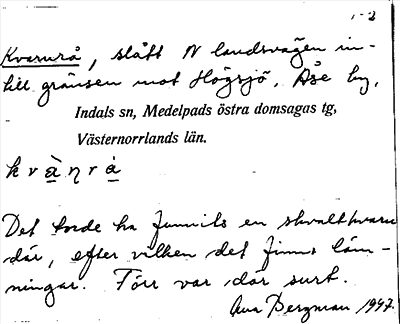 1-2
Kvarnrå, slått N landsvägen in-
till gränsen mot Högsjö, Åse by,
Indals sn, Medelpads östra domsagas tg,
Västernorrlands län.
kvàṇrá
Det torde ha funnits en skvaltkvarn
där, efter vilken det finns läm-
ningar. Förr var där surt.
Bergman 1947.